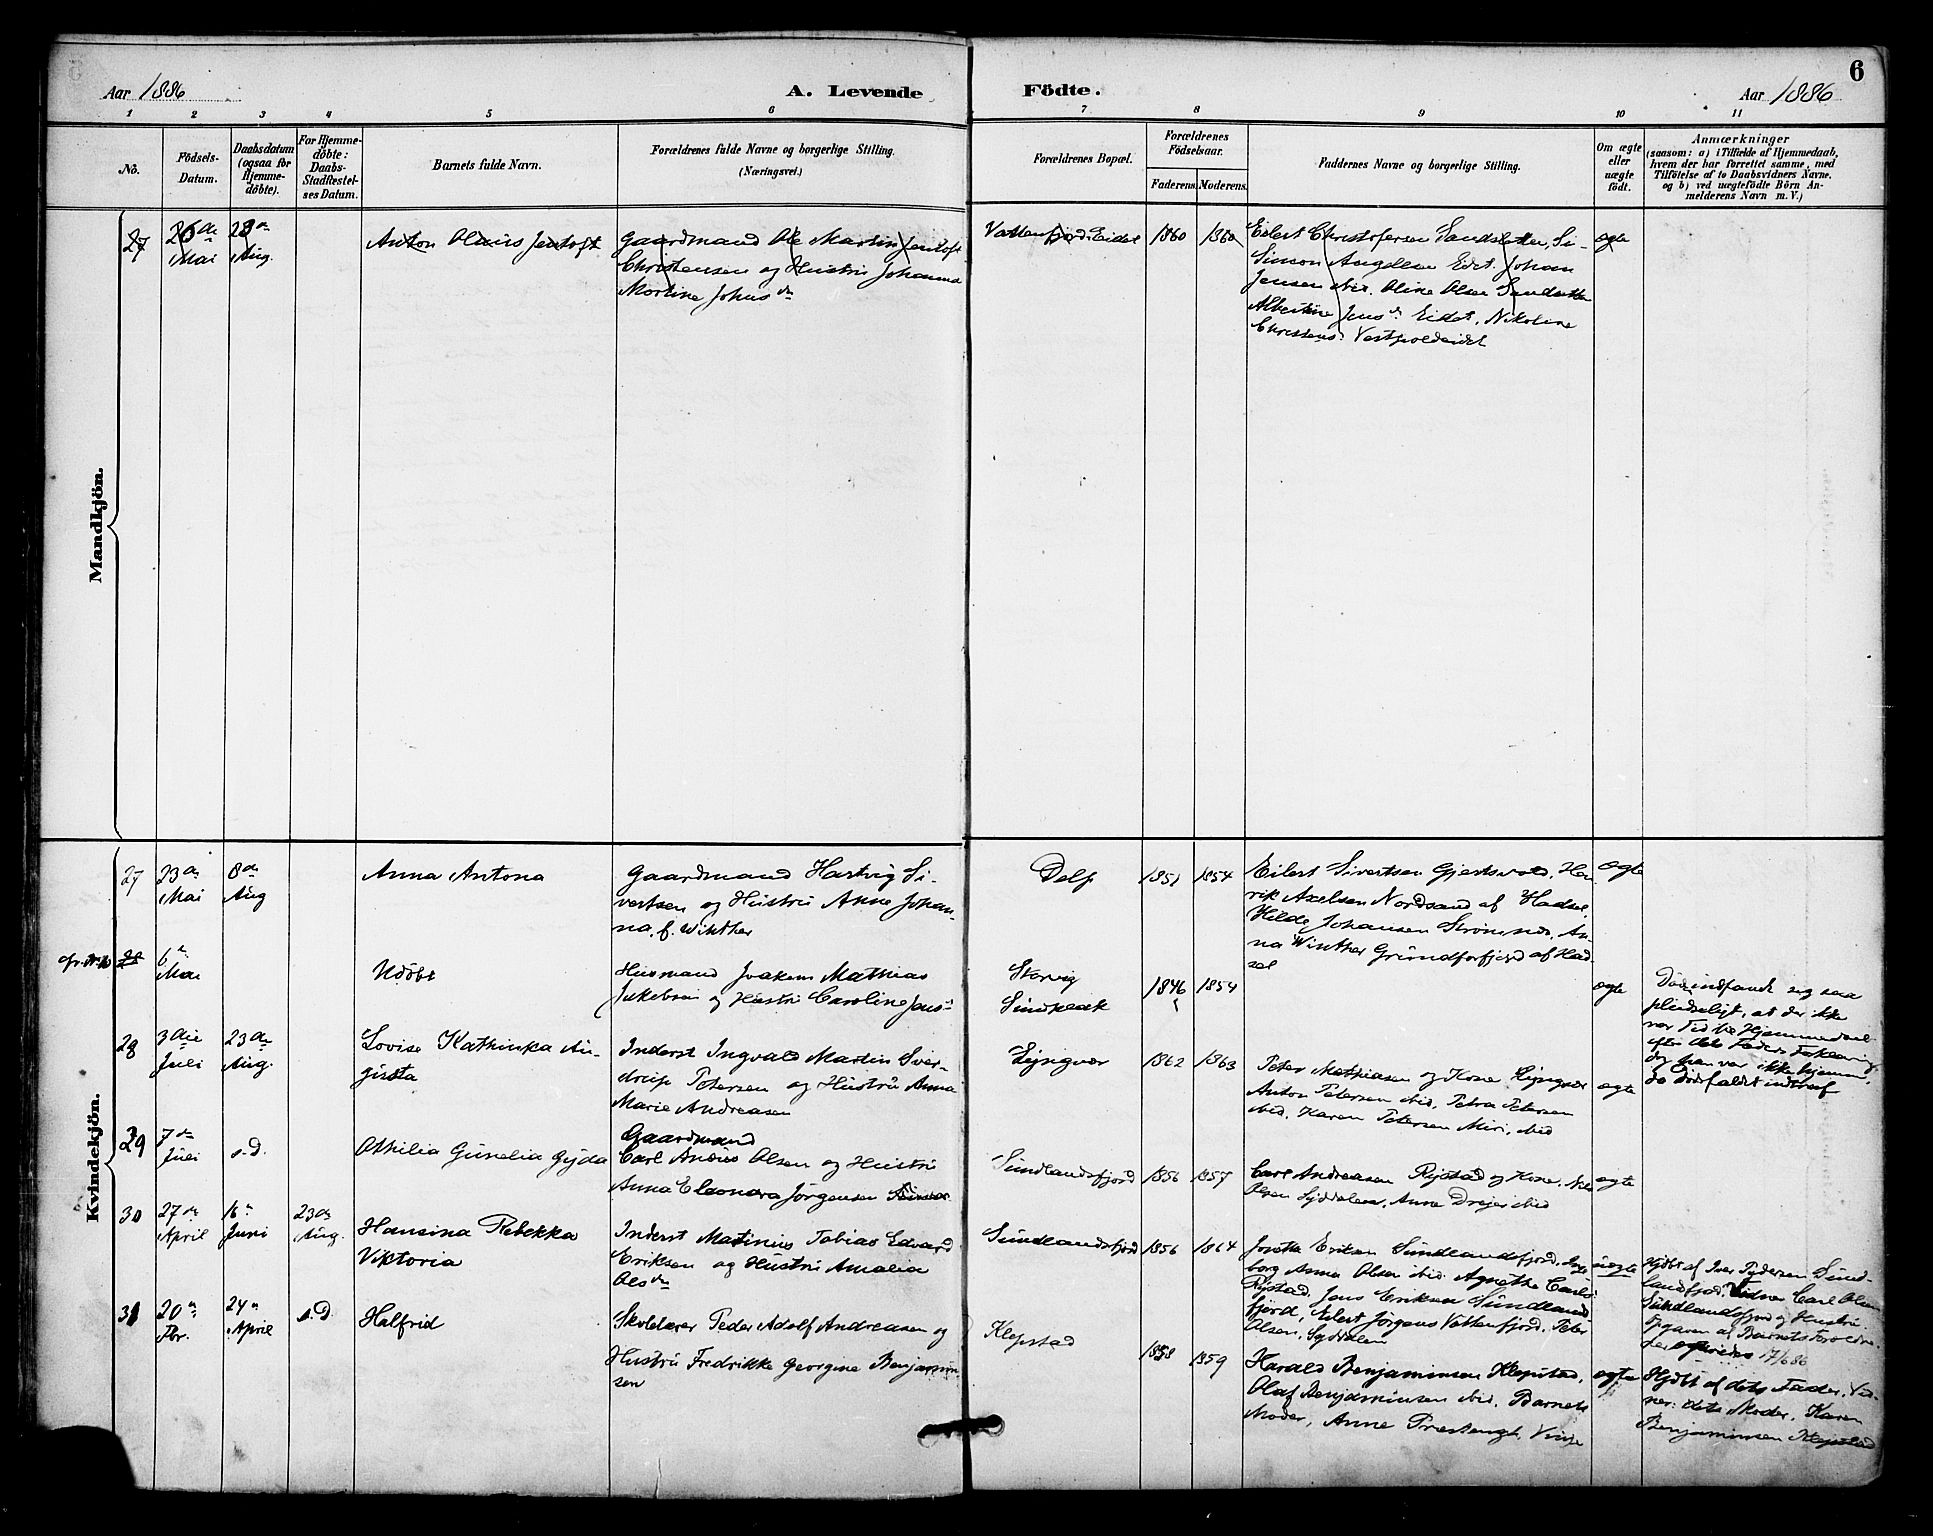 6
Aar 1886
A. Levende Födte.
Aar 1886
1 2 3 4 5 6 7 8 9 10 11
No.
Födsels-
Datum.
Daabsdatum
(ogsaa for
Hjemme-
döbte).
For Hjemme-
döbte:
Daabs-
Stadfæstel-
ses Datum.
Barnets fulde Navn.
Forældrenes fulde Navne og borgerlige Stilling.
(Næringsvei.)
Forældrenes Bopæl.
Forældrenes
Födselsaar.
Faderens. Moderens.
Faddernes Navne og borgerlige Stilling.
Om ægte
eller
uægte
födt.
Anmærkninger
(saasom: a) i Tilfælde af Hjemmedaab,
hvem der har forrettet samme, med
Tilföielse af to Daabsvidners Navne.
og b) ved uægtefödte Börn An-
melderens Navn m. V.)
Mandkjön.
27
26de
Mai
23de
Aug.
Anton Olaus Jentoft
Gaardmand Ole Martin Jentoft
Christensen og Hustru Johanna
Martine Johnsdn
Vattenfjord Eidet
1860
1860
Eilert Christofersen Sandsletten, Si-
Simon Angelsen Eidet. Johan
Jensen ibid. Oline Olsen Sandsletten
Albertine Jensdn Eidet, Nikoline
Christens. Vestpoldeidet
ægte
Kvindekjön.
27
23de
Mai
8de
Aug
Anna Antona
Gaardmand Hartvig Si-
vertsen og Hustru Anne Johan-
na, f. Winther
Delp
1851
1854
Eilert Sivertsen Gjertsvold, Hen-
rik Axelsen Nordsand af Hadsel,
Hilde Johansen Strömnes, An-
na Winther Grundforfjord af Had-
sel
ægte
28
6de
Mai
Udöbt
Husmand Joakim Mathias
Jakobsen og Hustru Caroline Jens
Storvig
Sundklak
1846
1854
ægte
28
3die
Juli
23de
Aug.
Lovise Kathinka Au-
gusta
Inderst Ingvald Martin Sver-
drup Petersen og Hustru Anna
Marie Andreasen
1862
1863
Peter Mathiasen og Kone
Anton Petersen ibid. Petra Petersen
ibid. Karen Petersen ibid
ægte
29
7de
Juli
s. D.
Othilia Gunelia Gyda
Gaardmand
Carl Andreas Olsen og Hustru
Anna Eleonora Jörgensen
Sundlandsfjord
1856
1857
Carl Andreasen Rystad og Kone, Nils
Olsen Syddalen, Anna Dreyer ibid
ægte
30
27de
April
16de
Juni
23de
Aug.
Hansina Rebekka
Viktoria
Inderst Martinus Tobias Edvard
Eriksen og Hustru Amalia
Olsdn
Sundlandsfjord
1856
1864
Josefa Eriksen Sundlandsfjord, Inge-
borg Anna Olsen ibid. Agnethe Carls
Rystad, Jens Eriksen Sundlands-
fjord, Eilert Jörgens Vattenfjord, Peter
Olsen, Syddalen
uægte
Hjdbt af Iver Pedersen Sund-
landsfjord, Vidner Carl Olsen
Sundlandsfjord og Hustru.
31
20de
Fbr.
24de
April
s. D.
Halfrid
Skolelærer Peder Adolf Andreasen og
Hustru Fredrikke Georgine Benjamin-
sen
Klepstad
1858
1859
Harald Benjaminsen Klepstad,
Olaf Benjaminsen ibid. Barnets
Moder, Anne
ægte
Hjdbt af dets Fader. Vid-
ner: dets Moder, Karen
Benjaminsen Klepstad